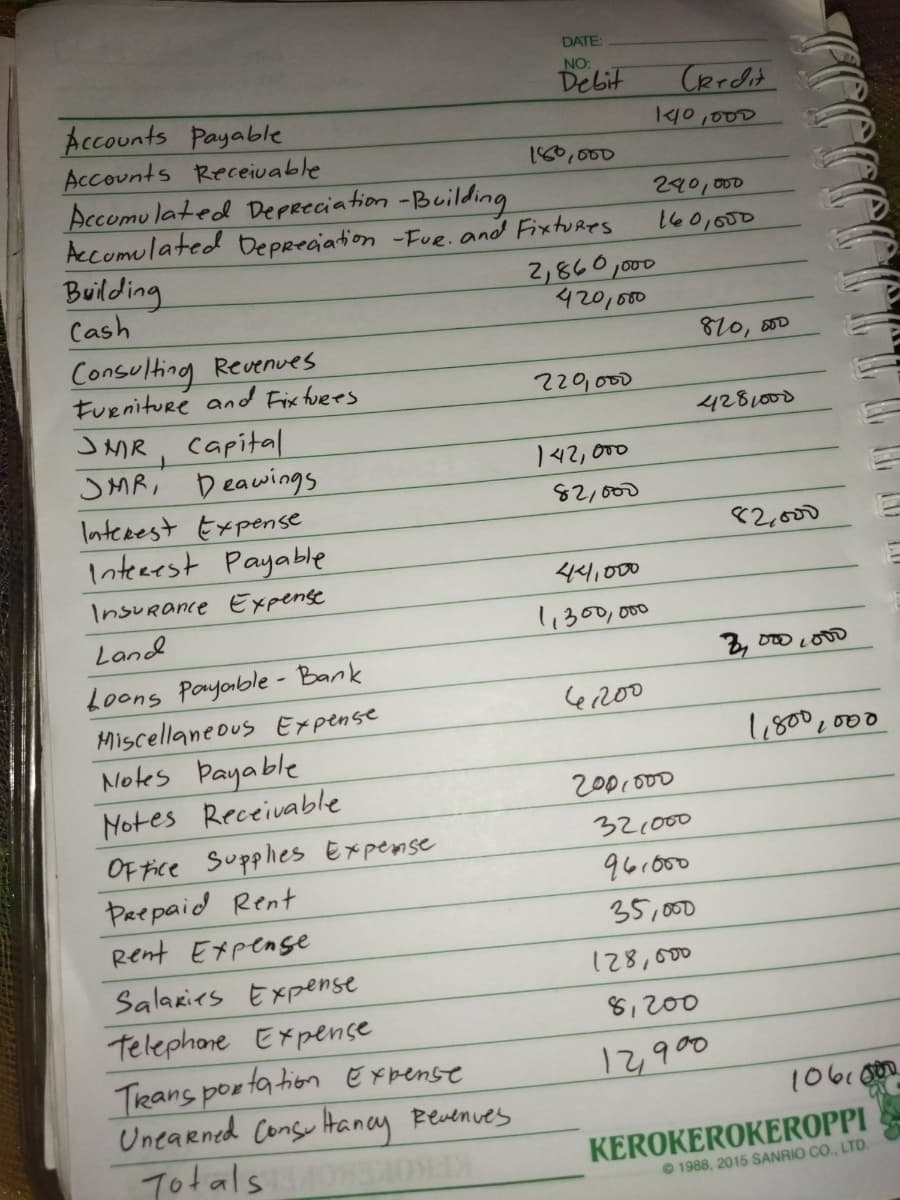 DATE:
NO:
Debit Credit
Accounts Payable 140,000
Accounts Receivable 180,000
Accumulated Depreciation - Building 240,000
Accumulated Depreciation - Fur. and Fixtures 160,000
Building 2,860,000
Cash 420,000
Consulting Revenues 810,000
Furniture and Fixtures 220,000
JMR, Capital 428,000
JMR, Drawings 142,000
Interest Expense 82,000
Interest Payable 82,000
Insurance Expense 44,000
Land 1,300,000
Loans Payable - Bank 2,000,000
Miscellaneous Expense 6,200
Notes Payable 1,800,000
Notes Receivable 200,000
Office Supplies Expense 32,000
Prepaid Rent 96,000
Rent Expense 35,000
Salaries Expense 128,000
Telephone Expense 8,200
Transportation Expense 12,900
Unearned Consultancy Revenues 106,000
Totals
KEROKEROKEROPPI
© 1988, 2015 SANRIO CO., LTD.